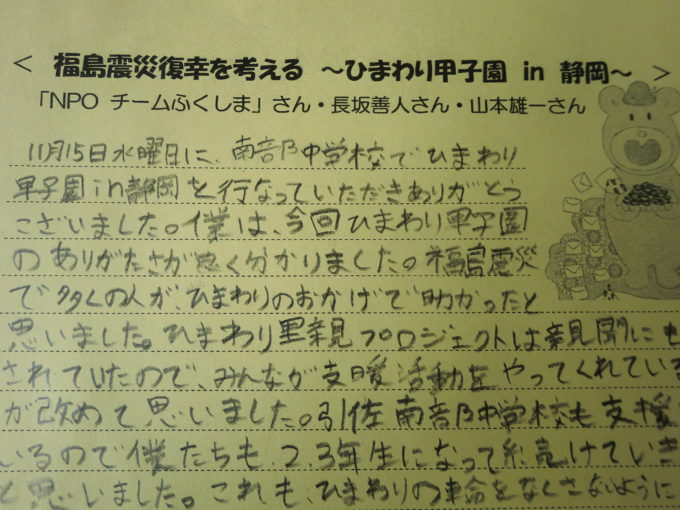 ＜ 福島震災復幸を考える ～ひまわり甲子園 in 静岡～ ＞
「NPO チームふくしま」さん・長坂善人さん・山本雄一さん
11月15日水曜日に、南部中学校でひまわり
甲子園in静岡を行なっていただきありがとう
ございました。僕は、今回ひまわり甲子園
のありがたさが良く分かりました。福島震災
で多くの人が、ひまわりのおかげで助かったと
思いました。ひまわり里親プロジェクトは新聞にも
されていたので、みんなが支援活動をやってくれている
が改めて思いました。引佐南部中学校も支援
いるので僕たちも、2、3年生になって続けていき
と思いました。これも、ひまわりの命をなくさないように